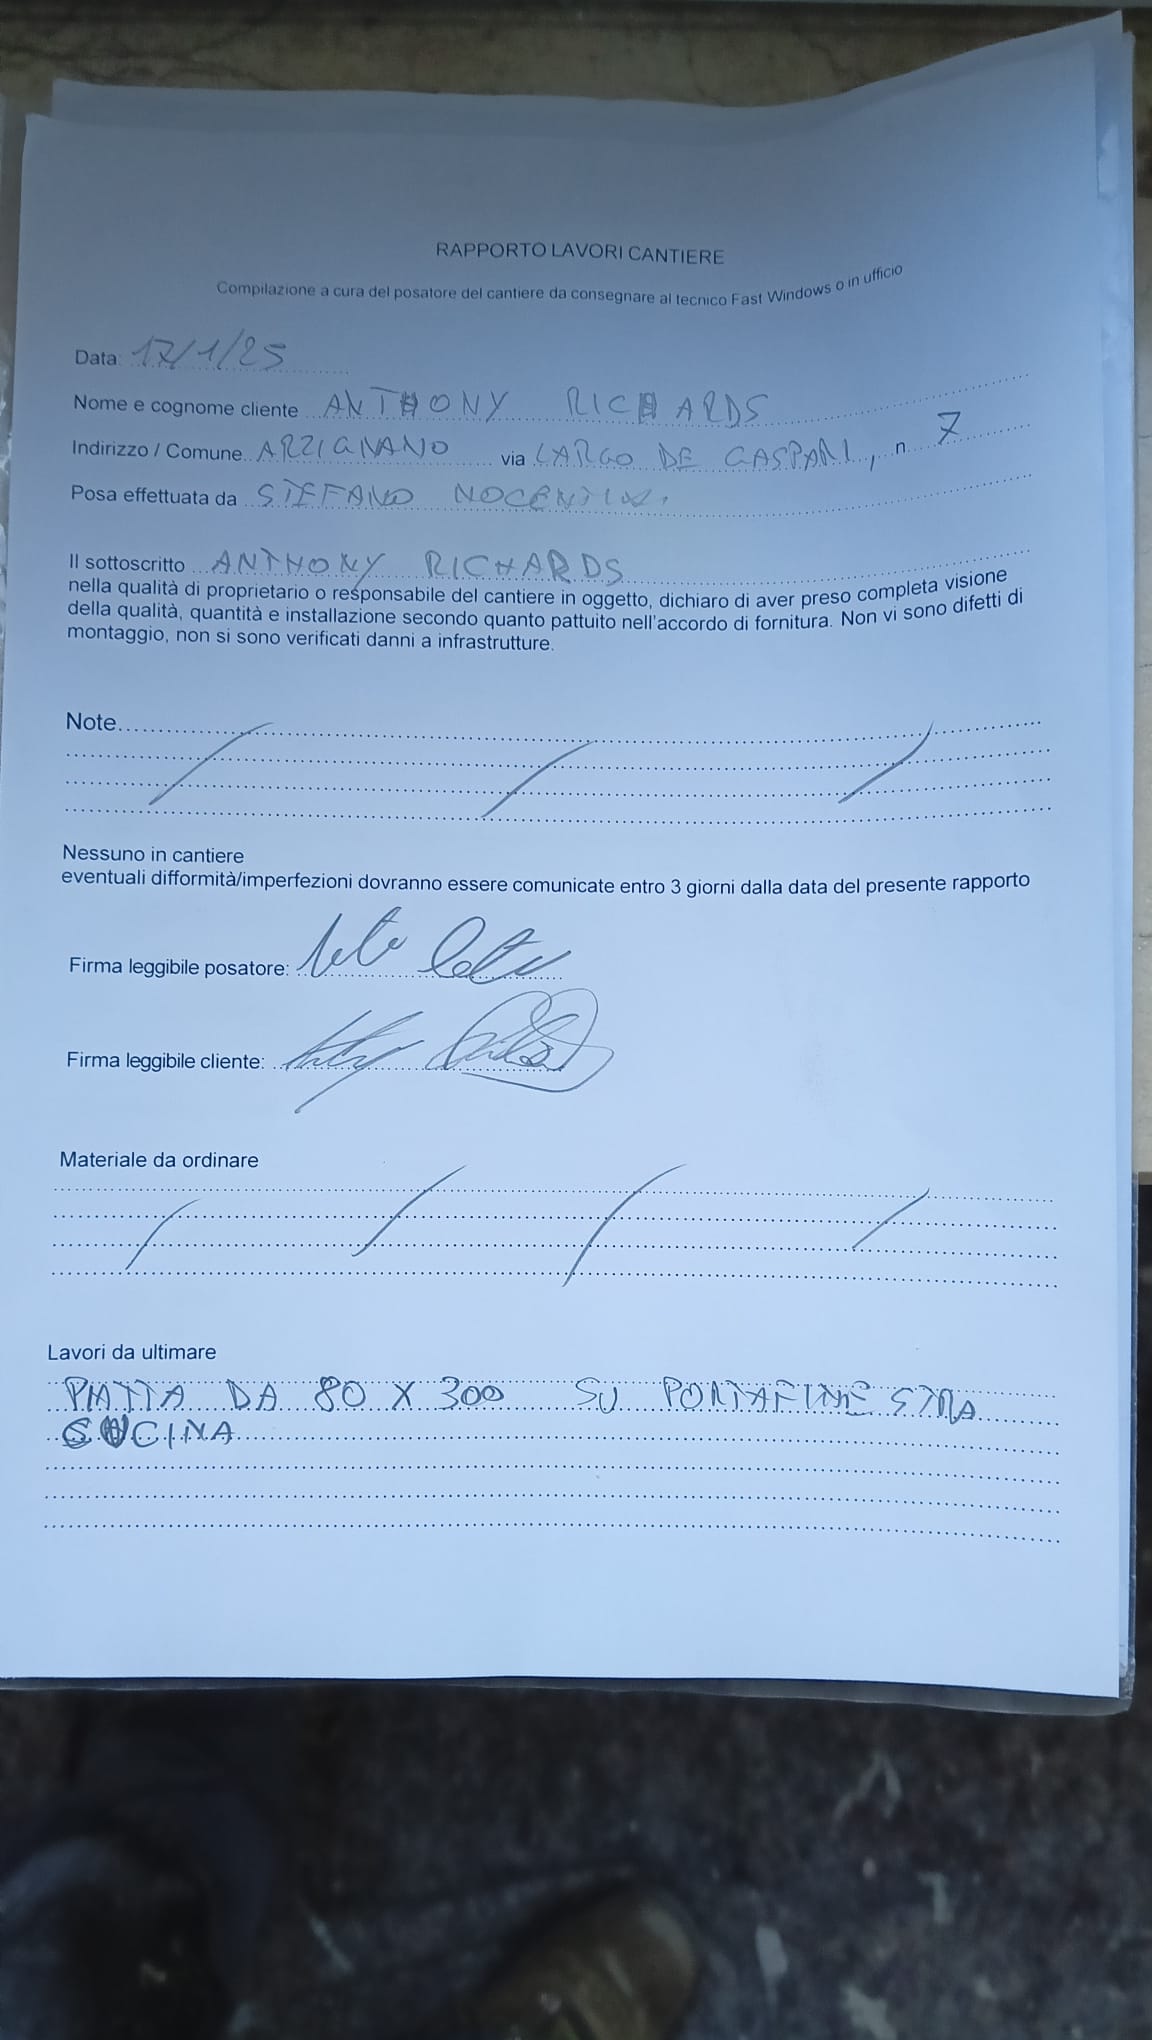 RAPPORTO LAVORI CANTIERE
Compilazione a cura del posatore del cantiere da consegnare al tecnico Fast Windows o in ufficio
Data: 17/1/25
Nome e cognome cliente ANTHONY RICHARDS
Indirizzo / Comune ARZIGNANO via LARGO DE GASPARI, n. 7
Posa effettuata da STEFANO NOCENTINI
Il sottoscritto ANTHONY RICHARDS
nella qualità di proprietario o responsabile del cantiere in oggetto, dichiaro di aver preso completa visione
della qualità, quantità e installazione secondo quanto pattuito nell'accordo di fornitura. Non vi sono difetti di
montaggio, non si sono verificati danni a infrastrutture.
Note
Nessuno in cantiere
eventuali difformità/imperfezioni dovranno essere comunicate entro 3 giorni dalla data del presente rapporto
Firma leggibile posatore:
Firma leggibile cliente:
Materiale da ordinare
Lavori da ultimare
PIATTA DA 80 X 300 SU
CUCINA